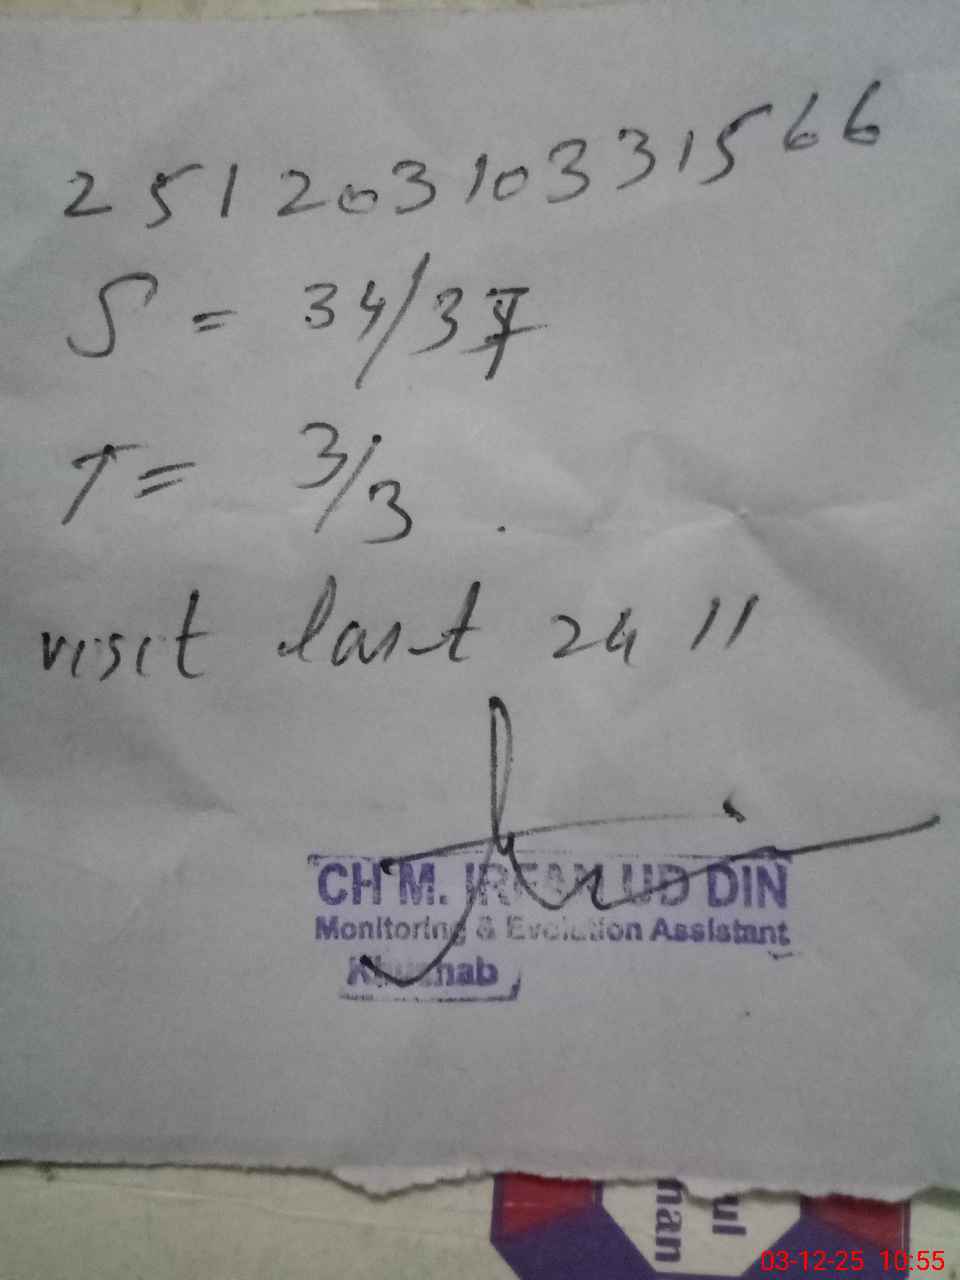 25120310331566
S = 34/37
T = 3/3
visit last 24 11
CH M. IRFAN UD DIN
Monitoring & Evolution Assistant
Khushab
ul
han
03-12-25 10:55